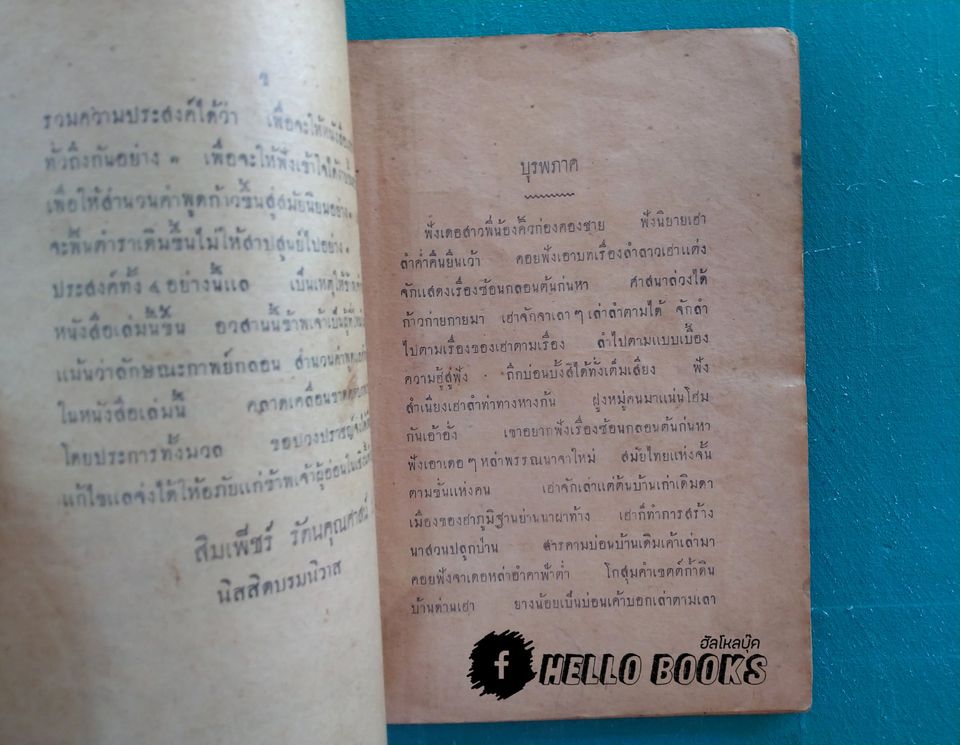 ข
รวมความประสงค์ได้ว่า เพื่อจะให้หนังสือ
ทั่วถึงกันอย่าง ๑ เพื่อจะให้ฟังเข้าใจได้
เพื่อให้สำนวนคำพูดก้าวขึ้นสู่สมัยนิยมอย่าง ๑
จะฟื้นตำราเดิมขึ้นไม่ให้สาปสูนย์ไปอย่าง ๑
ประสงค์ทั้ง ๔ อย่างนี้แล เป็นเหตุให้
หนังสือเล่มนี้ขึ้น อวสานนี้ข้าพเจ้าเป็น
แม้นว่าลักษณะกาพย์กลอน สำนวนคำพูด
ในหนังสือเล่มนี้ คลาดเคลื่อน
โดยประการทั้งมวล ขอปวงปราชญ์
แก้ไขแลจ่งได้ให้อภัยแก่ข้าพเจ้าผู้อ่อนใน
สิมเพ็ชร์ รัตนคุณศาสน์
นิสสิตบรมนิวาส
บุรพภาค
ฟังเดอสาวพี่น้องคิ้วก่องคองชาย ฟังนิยายเฮา
ลำค่ำคืนยืนเว้า คอยฟังเอาบทเรื่องลำลาวเฮาแต่ง
จักแสดงเรื่องซ้อนกลอนต้นก่นหา ศาสนาล่วงได้
ก้าวก่ายกายมา เฮาจักจาเลา ๆ เล่าลำตามได้ จักลำ
ไปตามเรื่องของเฮาตามเรื่อง ลำไปตามแบบเบื้อง
ความฮู้สู่ฟัง ถืกบ่อนบั้งสิได้ทั่งเต็มเสียง ฟัง
สำเนียงเฮาลำท่าทางหางกัน ฝูงหมู่คนมาแน่นโฮม
กันเอ้าอั่ง เขาอยากฟังเรื่องซ้อนกลอนต้นก่นหา
ฟังเอาเดอ ๆ หล่าพรรณนาจาใหม่ สมัยไทยแห่งจั้น
ตามชั้นแห่งคน เฮาจักเล่าแต่ต้นบ้านเก่าเดิมดา
เมืองของฮาภูมิฐานย่านนาผาท้าง เฮาก็ทำการสร้าง
นาสวนปลูกบ้าน สารคามบ่อนบ้านเดิมเค้าเล่ามา
คอยฟังจาเดอหล่าอำคาฟ้าต่ำ โกสุมคำเขตต์ก้ำดิน
บ้านด่านเฮา ยางน้อยเป็นบ่อนเค้าบอกเล่าตามเลา
ฮัลโหลบุ๊ค
f HELLO BOOKS